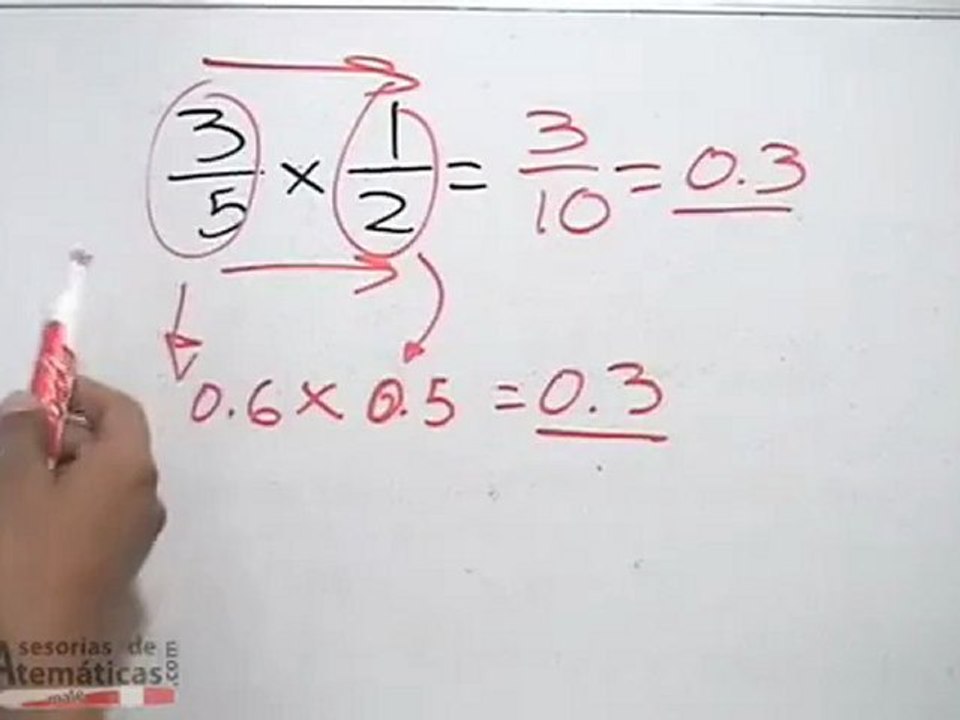 3/5 × 1/2 = 3/10 = 0.3
0.6 × 0.5 = 0.3
Asesorias de
Matemáticas.com